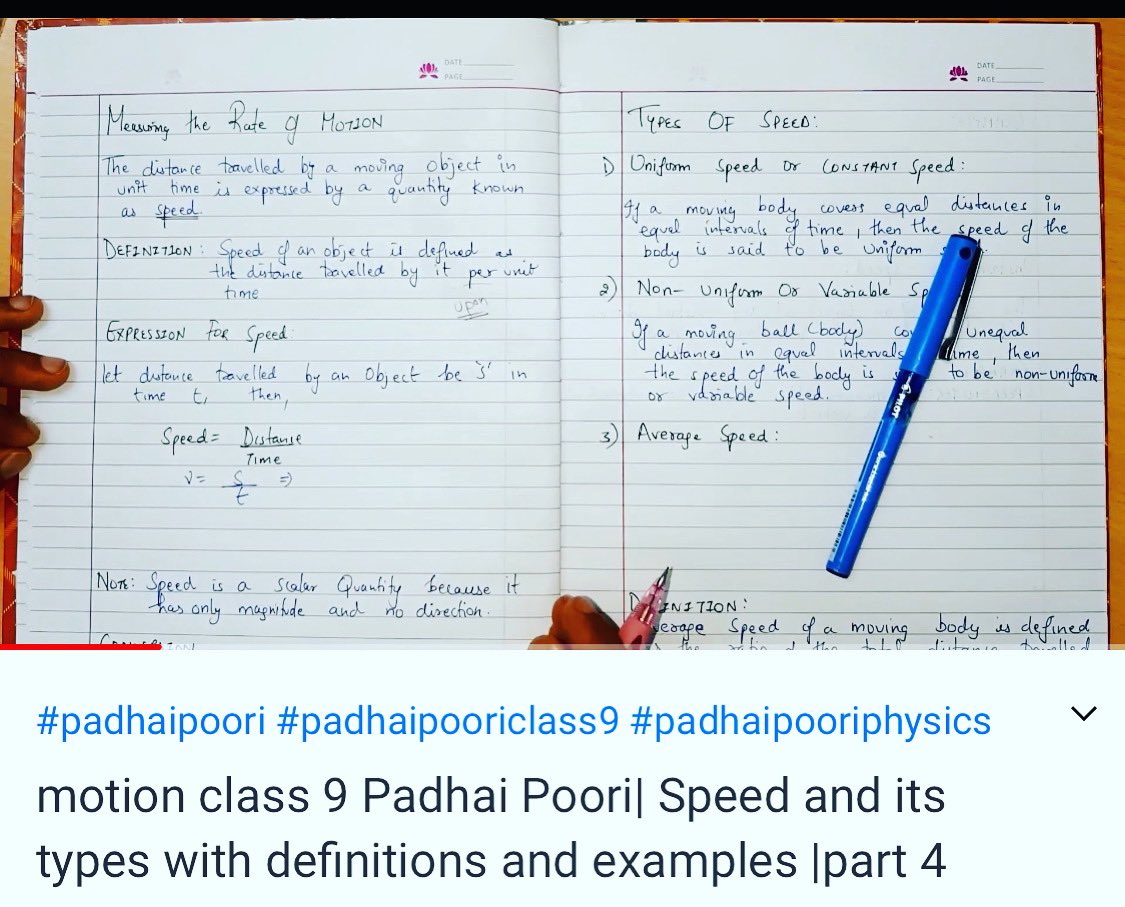 DATE
PAGE
Measuring the Rate of MOTION
The distance travelled by a moving object in
unit time is expressed by a quantity known
as speed.
DEFINITION : Speed of an object is defined as
the distance travelled by it per unit
time
upan
EXPRESSION FOR Speed:
let distance travelled by an Object be 'S' in
time t, then,
Speed = Distance
Time
v = S
t
=)
NOTE: Speed is a scalar Quantity because it
has only magnitude and no direction.
DATE
PAGE
TYPES OF SPEED:
1) Uniform Speed Or CONSTANT Speed:
If a moving body covers equal distances in
equal intervals of time, then the speed of the
body is said to be Uniform
2) Non-Uniform Or Variable Sp
If a moving ball (body) co unequal
distances in equal intervals time, then
the speed of the body is s to be non-uniform
or variable speed.
3) Average Speed:
PILOT
D INITION:
verage Speed of a moving body is defined
the ratio of the total distance travelled
#padhaipoori #padhaipooriclass9 #padhaipooriphysics
motion class 9 Padhai Poori| Speed and its
types with definitions and examples |part 4